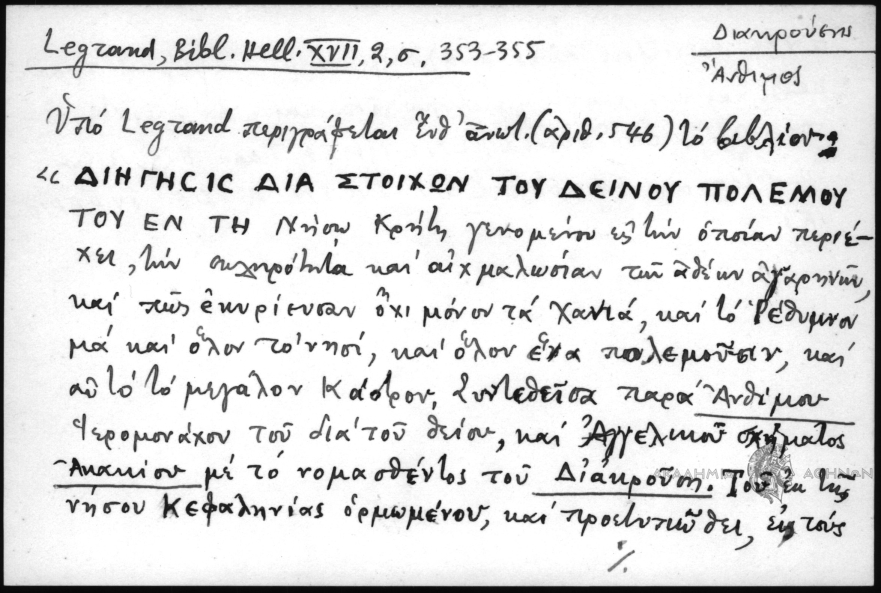 Legrand, Bibl. Hell. XVII, 2, σ. 353-355
Διακρούσης
Ἄνθιμος
Ὑπό Legrand περιγράφεται ἔνθ' ἀνωτ. (ἀριθ. 546) τό βιβλίον:
« ΔΙΗΓΗCΙC ΔΙΑ ΣΤΟΙΧΩΝ ΤΟΥ ΔΕΙΝΟΥ ΠΟΛΕΜΟΥ
ΤΟΥ ΕΝ ΤΗ Νήσω Κρήτη γενομένου εἰς τήν ὁποίαν περιέ-
χει, τήν σκληρότητα καί αἰχμαλωσίαν τῶν ἀθέων ἀγαρηνῶν,
καί πῶς ἐκυρίευσαν ὄχι μόνον τά Χανιά, καί τό Ῥέθυμνον
μά καί ὅλον τό νησί, καί ὅλον ἕνα πολεμοῦσιν, καί
αὐτό τό μεγάλον Κάστρον, Συντεθεῖσα παρά Ἀνθίμου
Ἱερομονάχου τοῦ διά τοῦ θείου, καί Ἀγγελικοῦ σχήματος
Ἀκακίου μέ τό νομασθέντος τοῦ Διάκρούση. Τοῦ ἐκ τῆς
νήσου Κεφαληνίας ὁρμωμένου, καί προετυπώθει, εἰς τούς
./.
ΑΚΑΔΗΜΙΑ ΑΘΗΝΩΝ